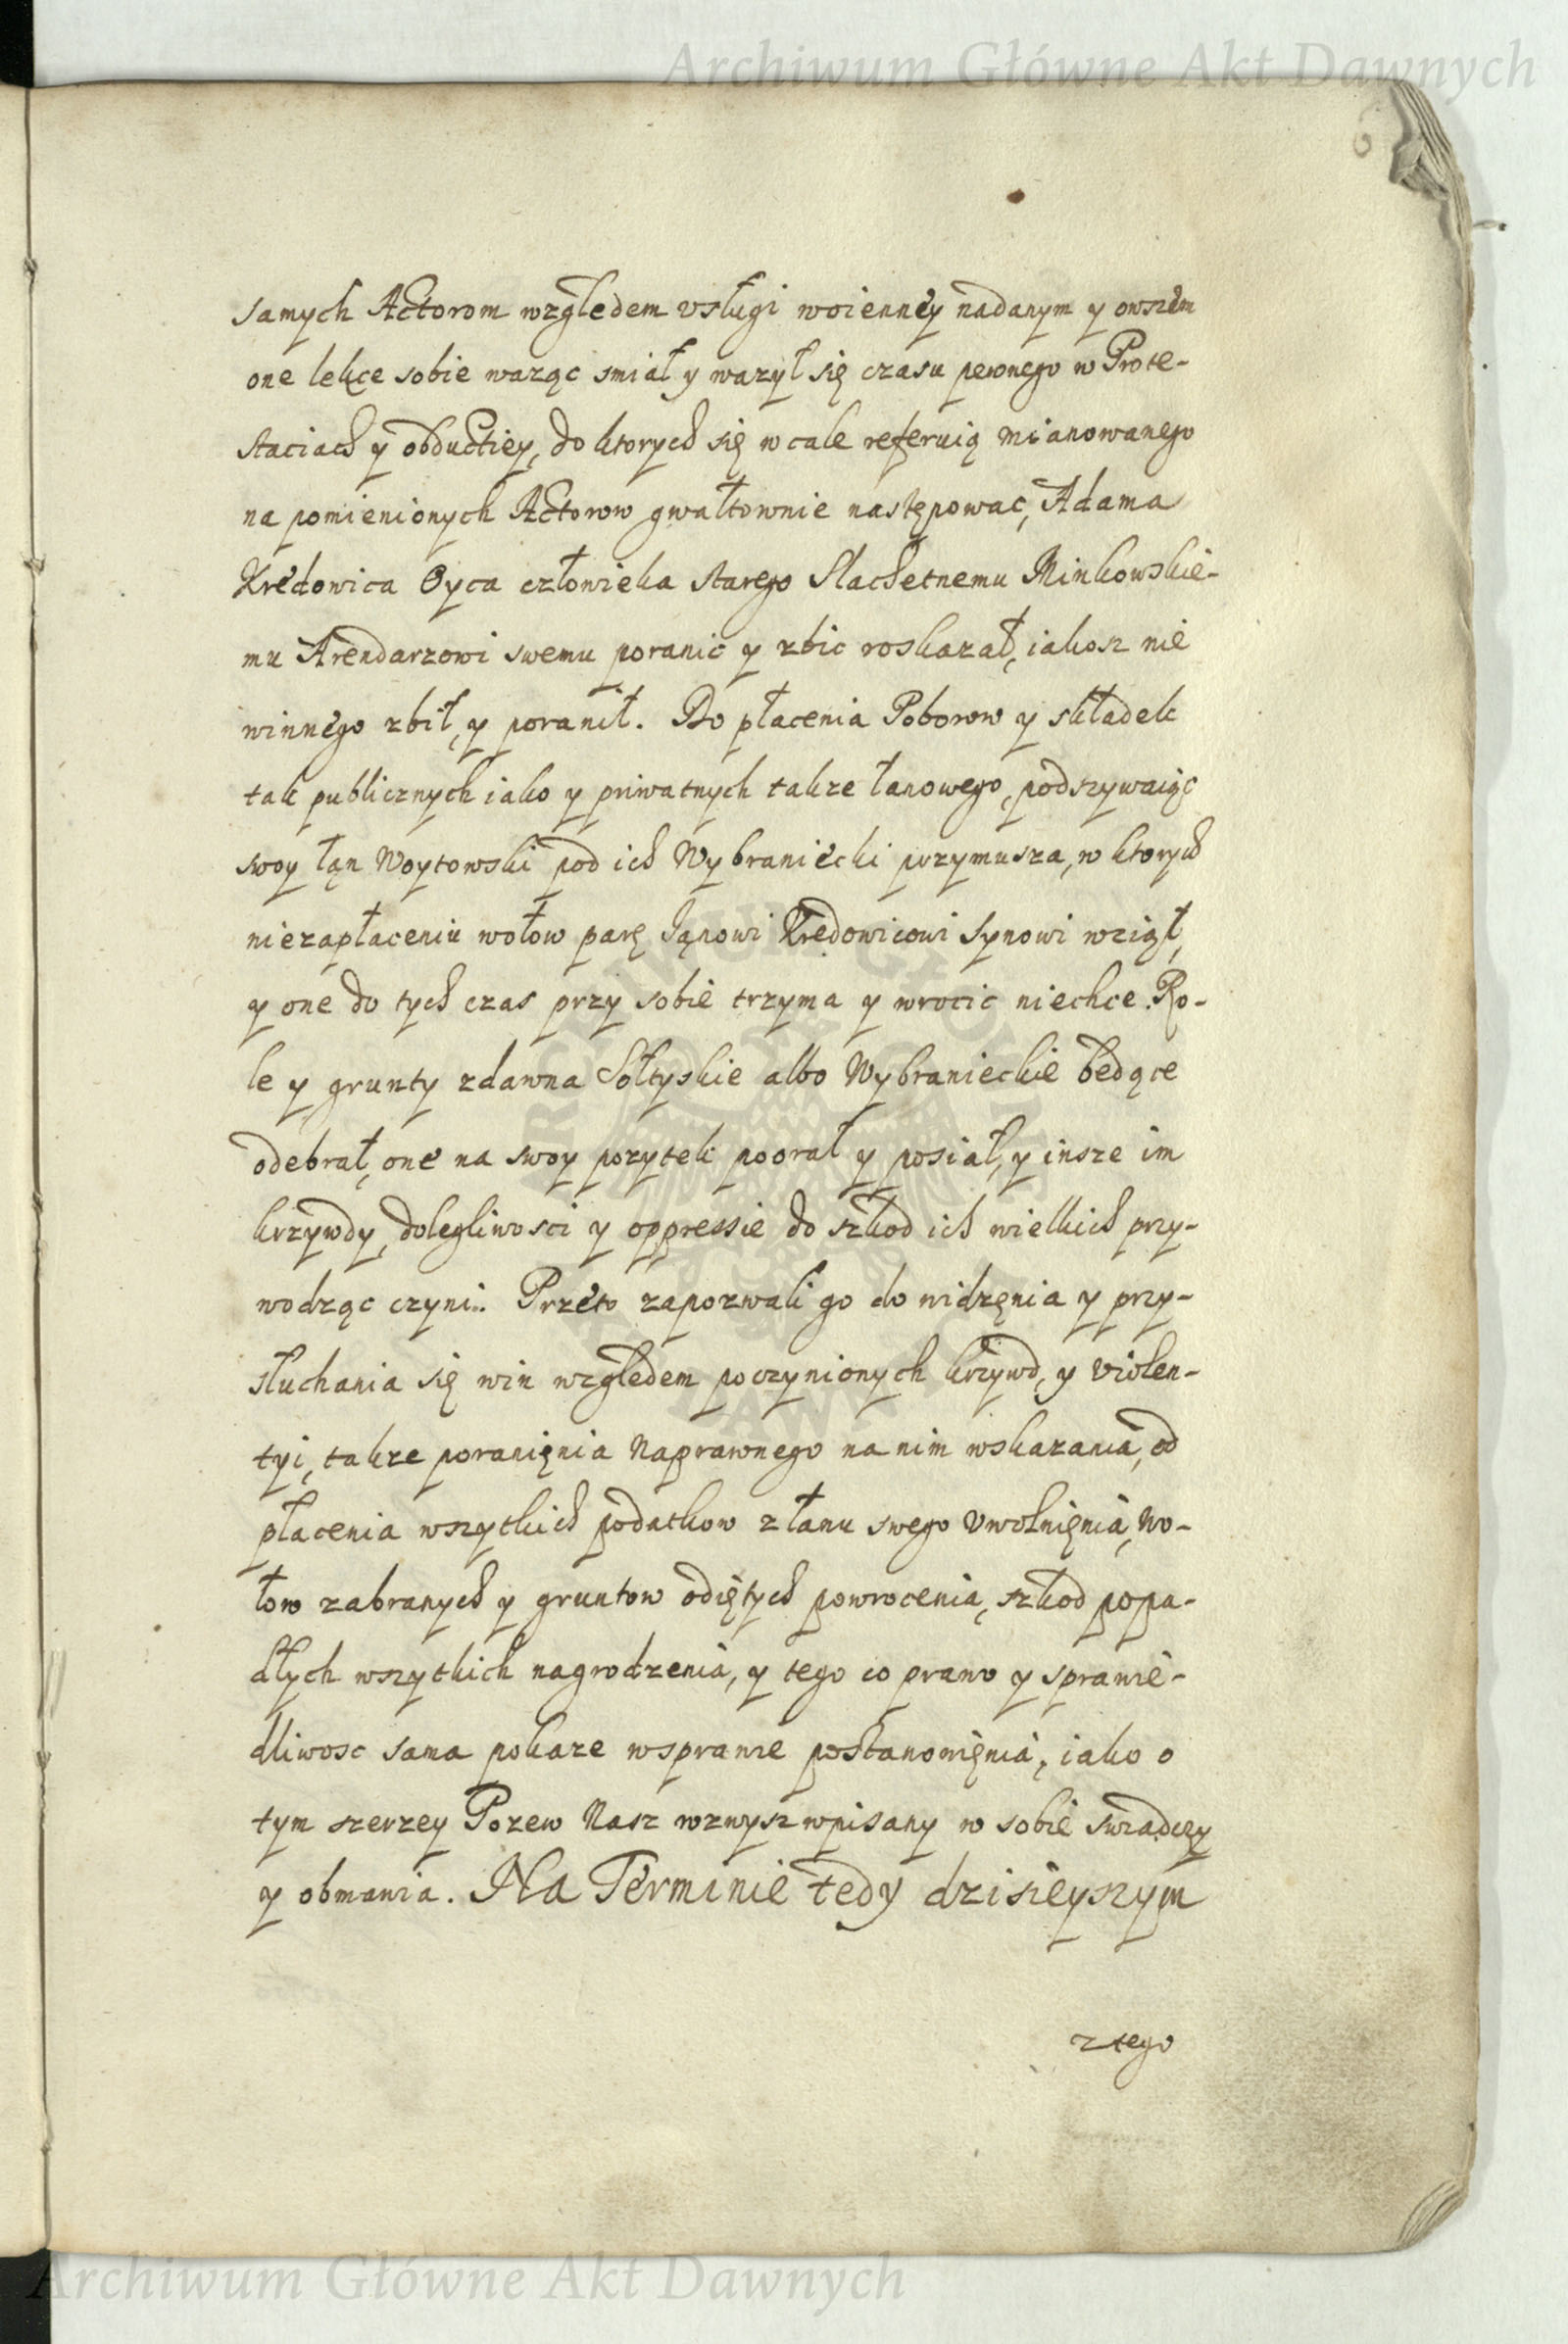 Archiwum Główne Akt Dawnych
6
samych Actorom względem vsługi woienney nadanym y owszem
one lekce sobie ważąc smiał y ważył się czasu pewnego w Prote-
staciach y obductiey, do ktorych się w cale referuią mianowanego
na pomienionych Actorow gwałtownie następować, Adama
Kredowica Oyca człowieka starego Slachetnemu Minkowskie-
mu Arendarzowi swemu poranic y zbic roskazał, iakosz nie
winnego zbił, y poranił. Do płacenia Poborow y składek
tak publicznych iako y priwatnych takze łanowego, podszywaiąc
swoy łąn Woytowski pod ich Wybraniecki przymusza, w ktorych
niezapłaceniu wołow parę Jąnowi Kredowicowi Synowi wziął,
y one do tych czas przy sobie trzyma y wrocic niechce. Ro-
le y grunty zdawna Sołtyskie albo Wybranieckie będące
odebrał, one na swoy pozytek poorał y posiał, y insze im
krzywdy, dolegliwosci y oppressie do szkod ich wielkich przy-
wodząc czyni. Przeto zapozwali go do widzęnia y przy-
słuchania się win względem poczynionych krzywd, y violen-
tyi, takze poranięnia Naprawnego na nim wskazania, od
płacenia wszytkich podatkow z łanu swego Vwolnięnia, Wo-
łow zabranych y gruntow odiętych powrocenia, szkod popa-
dłych wszytkich nagrodzenia, y tego co prawo y sprawie-
dliwosc sama pokaze wsprawie postanowięnia, iako o
tym szerzey Pozew Nasz wzwysz wpisany w sobie swiadczy
y obmawia. Na Terminie tedy dzisieyszym
z tego
Archiwum Główne Akt Dawnych